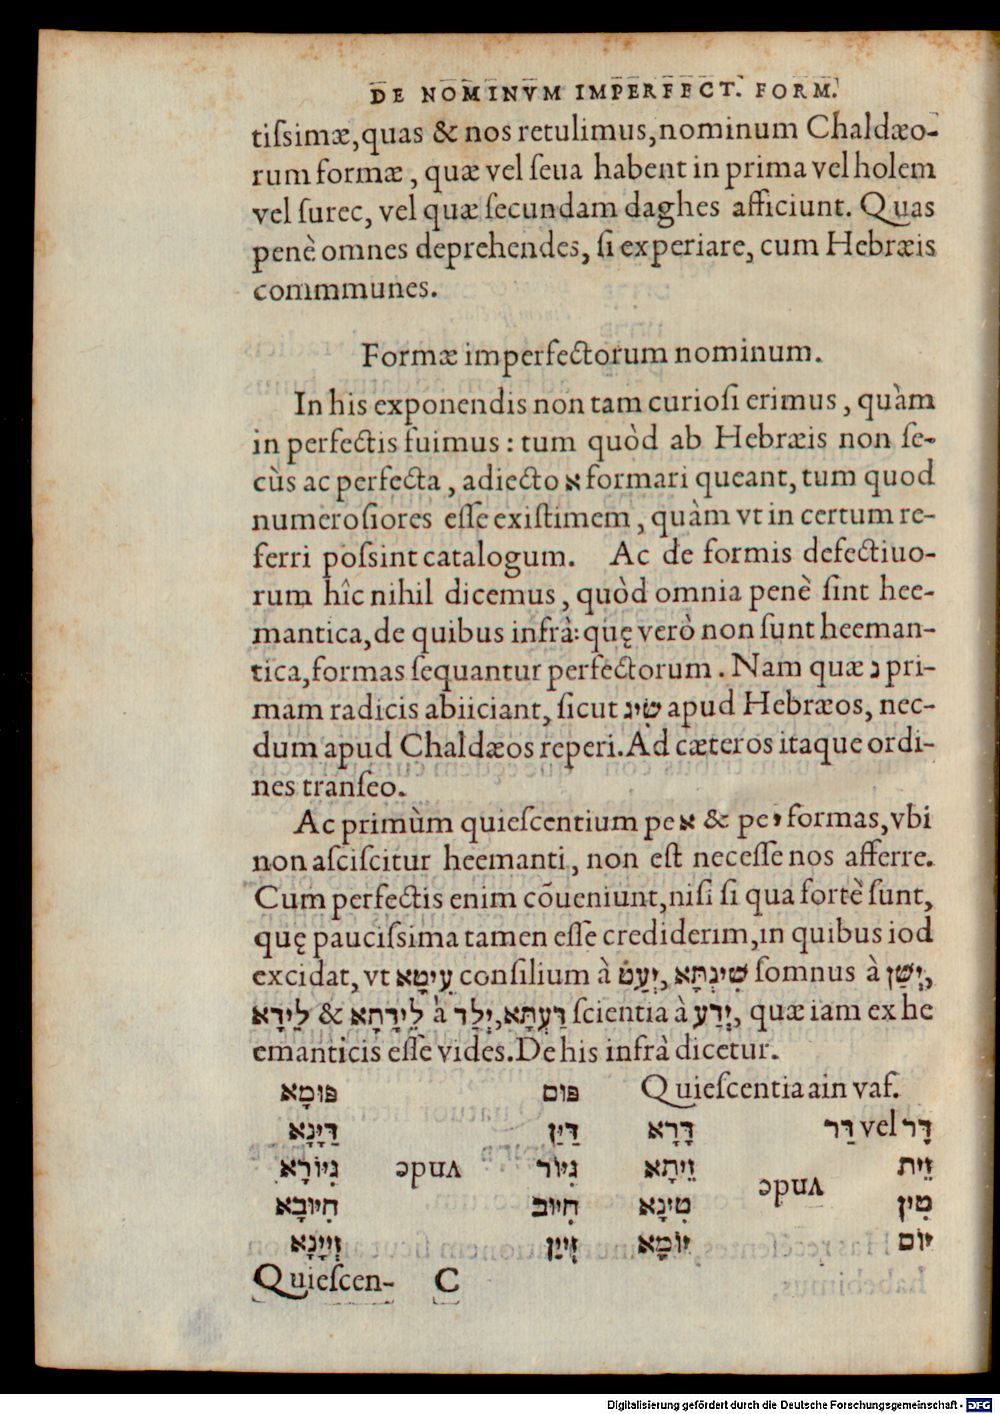 DE NOMINVM IMPERFECT. FORM.
tiſsimæ, quas & nos retulimus, nominum Chaldæo-
rum formæ, quæ vel ſeua habent in prima vel holem
vel ſurec, vel quæ ſecundam daghes afficiunt. Quas
penè omnes deprehendes, ſi experiare, cum Hebræis
commmunes.
Formæ imperfectorum nominum.
In his exponendis non tam curioſi erimus, quàm
in perfectis fuimus: tum quòd ab Hebræis non ſe-
cùs ac perfecta, adiecto א formari queant, tum quod
numeroſiores eſſe existimem, quàm vt in certum re-
ferri poſsint catalogum. Ac de formis defectiuo-
rum hîc nihil dicemus, quòd omnia penè ſint hee-
mantica, de quibus infrà: quę verò non ſunt heeman-
tica, formas ſequantur perfectorum. Nam quæ נ pri-
mam radicis abiiciant, ſicut שִׂיג apud Hebræos, nec-
dum apud Chaldæos reperi. Ad cæteros itaque ordi-
nes tranſeo.
Ac primùm quieſcentium pe א & pe י formas, vbi
non aſciſcitur heemanti, non est neceſſe nos afferre.
Cum perfectis enim cōueniunt, niſi ſi qua fortè ſunt,
quę pauciſsima tamen eſſe crediderim, in quibus iod
excidat, vt עִיטָא conſilium à יְעַט, שִׁינְתָּא ſomnus à יְשַׁן,
לֵידָא & לֵידָתָא à יְלַד, דַּעְתָּא ſcientia à יְדַע, quæ iam ex he
emanticis eſſe vides. De his infrà dicetur.
Quieſcentia ain vaf. פּוּם פּוּמָא
דָּר vel דַּר דָּרָא דַּיַּן דַּיָּנָא
זֵית זֵיתָא גִּיּוֹר vnde גִּיּוֹרָא
טִין vnde טִינָא חִיּוּב חִיּוּבָא
יוֹם יוֹמָא זְיַן זְיָינָא
Quieſcen- C
Digitalisierung gefördert durch die Deutsche Forschungsgemeinschaft - DFG